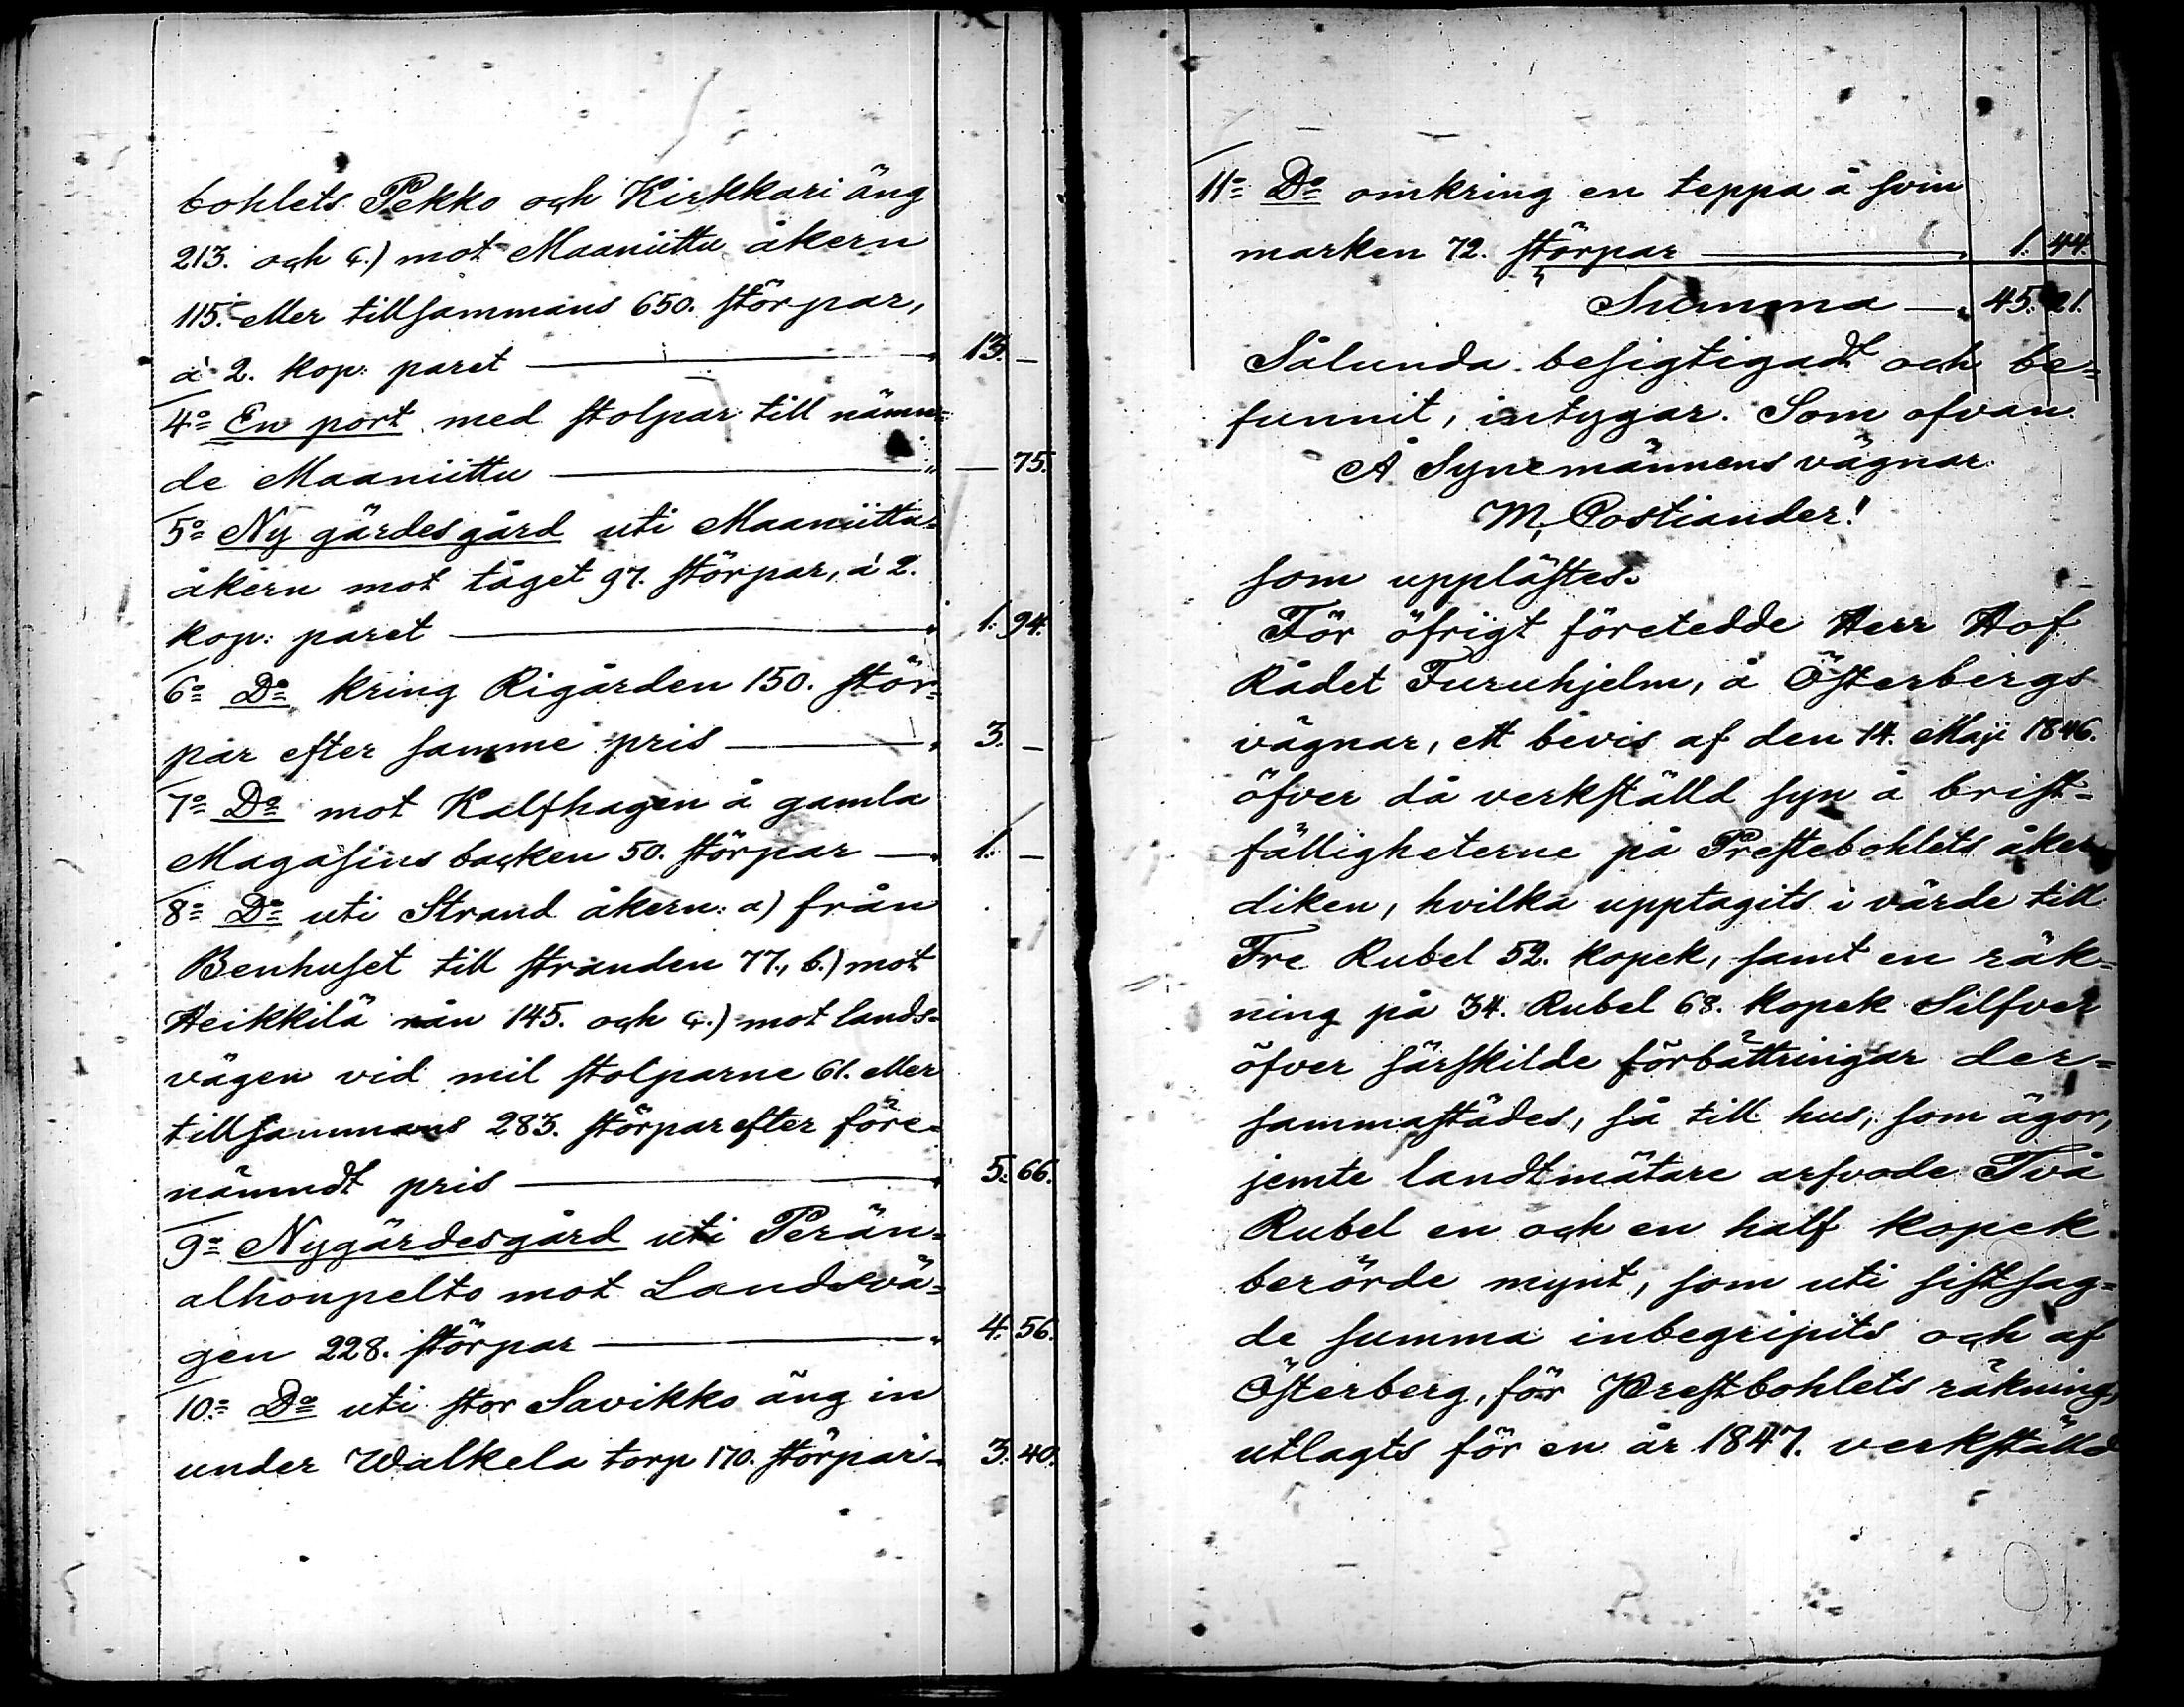 bohlets Pekko och Kirkkari äng
213. och c.) mot Maaniittu åkern
115. eller tillsammans 650. störpar,
à 2. kop: paret — " 13. —
4:o En port med stolpar till nämn=
de Maaniittu — " — 75.
5:o Ny gärdesgård uti Maaniittu=
åkern mot tåget 97. störpar, à 2.
kop: paret — " 1. 94.
6:o D:o kring Rigården 150. stör=
par efter samme pris — " 3. —
7:o D:o mot Kalfhagen å gamla
Magasins backen 50. störpar — " 1. —
8:o D:o uti Strand åkern: a) från
Benhuset till stranden 77., b.) mot
Heikkilä rån 145. och c.) mot lands=
vägen vid mil stolparne 61. eller
tillsammans 283. störpar efter före=
nämndt pris — " 5. 66.
9:o Nygärdesgård uti Perän=
alhonpelto mot Landsvä=
gen 228. störpar — " 4. 56.
10:o D:o uti stor Savikko äng in
under Walkela torp 170. störpar " 3. 40.
11:o D:o omkring en teppa å svin
marken 72. störpar — " 1. 44.
Summa — " 45. 21.
Sålunda besigtigadt och be=
funnit, intygar. Som ofvan.
Å Synemännens vägnar
M. Costiander!
som upplästes.
För öfrigt företedde Herr Hof
Rådet Furuhjelm, å Österbergs
vägnar, ett bevis af den 14. Maji 1846.
öfver då verkställd syn å brist=
fälligheterne på Prestebohlets åker
diken, hvilka upptagits i värde till
Tre Rubel 52. kopek, samt en räk=
ning på 34. Rubel 68. kopek Silfver
öfver särskilde förbättringar der=
sammastädes, så till hus, som ägor,
jemte landtmätare arfvode Två
Rubel en och en half kopek
berörde mynt, som uti sistsag=
de summa inbegripits och af
Österberg, för Prestbohlets räkning,
utlagts för en år 1847. verkställd